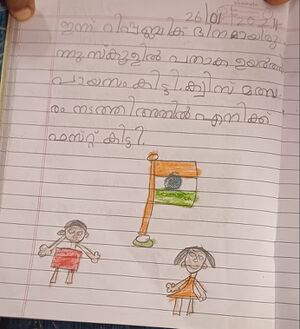 26/01/2024
ഇന്ന് റിപ്പബ്ലിക് ദിനമായിരു
ന്നു സ്കൂളിൽ പതാക ഉയർത്തി
പായസം കിട്ടി. ക്വിസ് മത്സ
രം നടത്തിഅതിൽ എനിക്ക്
ഫസ്റ്റ് കിട്ടി.